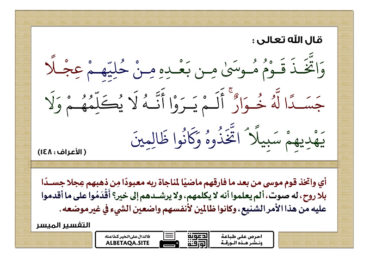 قال الله تعالى :
وَاتَّخَذَ قَوْمُ مُوسَىٰ مِن بَعْدِهِ مِنْ حُلِيِّهِمْ عِجْلًا
جَسَدًا لَّهُ خُوَارٌ ۚ أَلَمْ يَرَوْا أَنَّهُ لَا يُكَلِّمُهُمْ وَلَا
يَهْدِيهِمْ سَبِيلًا ۘ اتَّخَذُوهُ وَكَانُوا ظَالِمِينَ
( الأعراف : ١٤٨)
أي واتخذ قوم موسى من بعد ما فارقهم ماضيًا لمناجاة ربه معبودًا مِن ذهبهم عِجلا جسدًا
بلا روح، له صوت، ألم يعلموا أنه لا يكلمهم، ولا يرشدهم إلى خير؟ أقْدَمُوا على ما أقدموا
عليه من هذا الأمر الشنيع، وكانوا ظالمين لأنفسهم واضعين الشيء في غير موضعه.
التفسير الميسر
احرص على طباعة
ونشر هذه الورقة
فالدال على الخير كفاعله
ALBETAQA.SITE